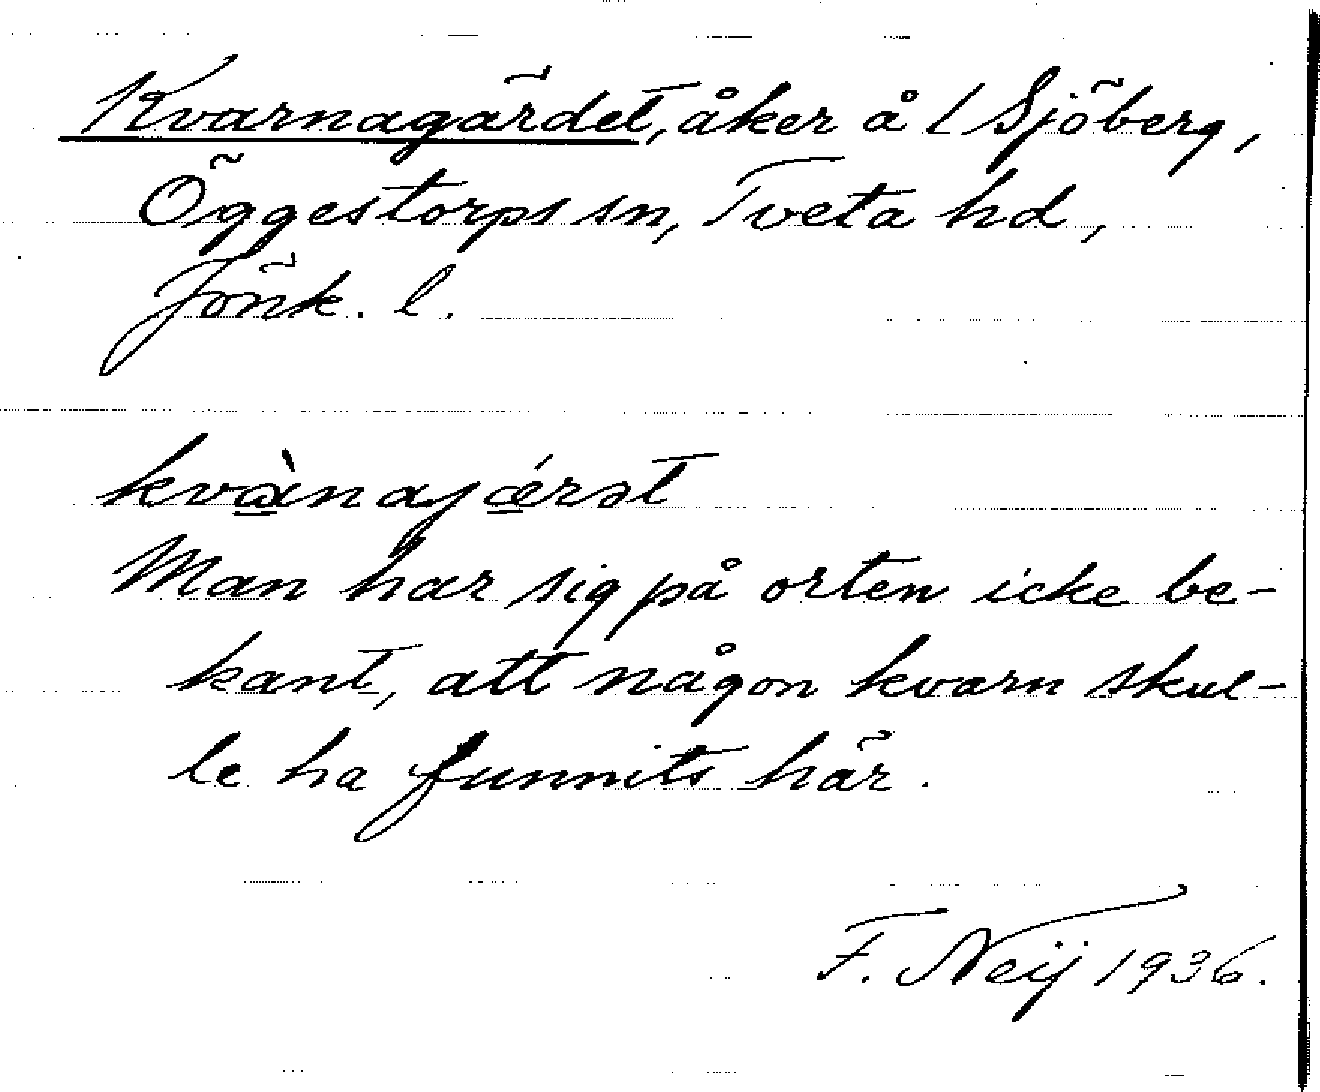 Kvarnagärdet, åker å 1 Sjöberg,
Öggestorps sn, Tveta hd,
Jönk. l.
kvànajǽrət
Man har sig på orten icke be-
kant, att någon kvarn skul-
le ha funnits här.
F. Neij 1936.